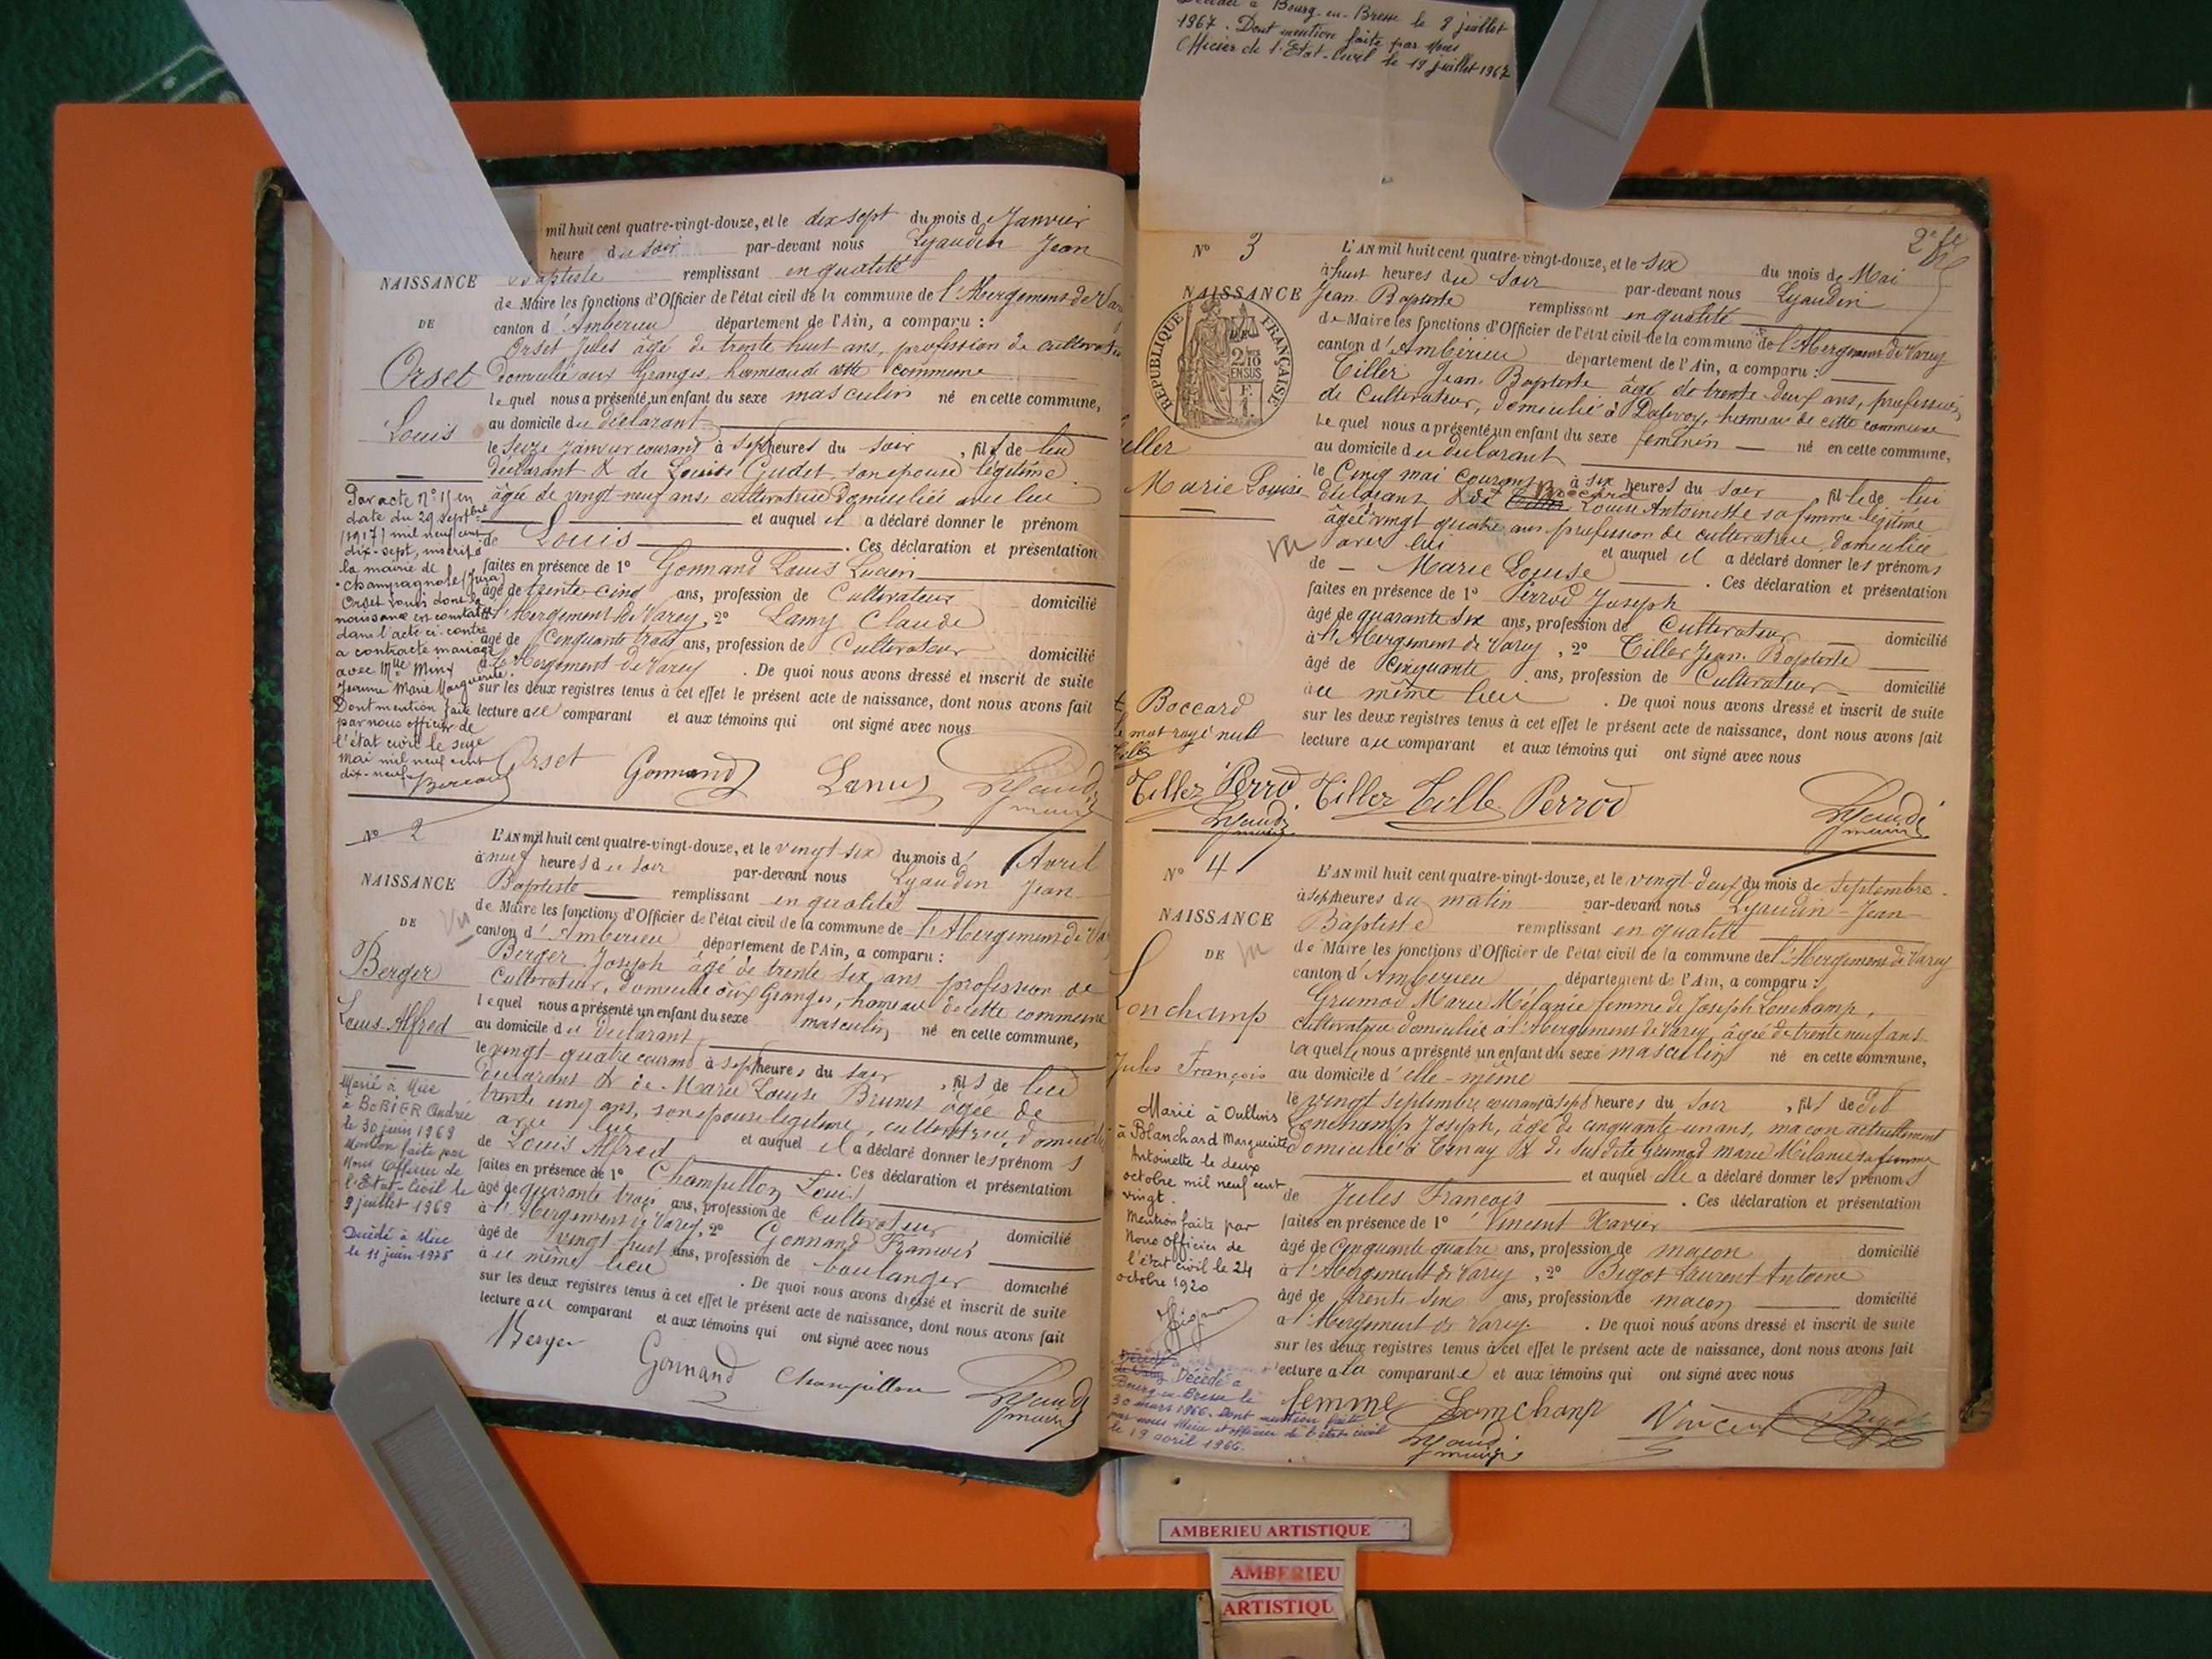 Bourg-en-Bresse le 8 juillet
1967. Dont mention faite par Nous
Officier de l'Etat-Civil le 19 juillet 1967
mil huit cent quatre-vingt-douze, et le dix sept du mois d Janvier
heure du soir par-devant nous Lyaudin Jean
NAISSANCE
Baptiste remplissant en qualité
de Maire les fonctions d'Officier de l'état civil de la commune de l'Abergement de Varey
DE
canton d'Amberieu département de l'Ain, a comparu :
Orset Jules âgé de trente huit ans, profession de cultivateur
Orset
domicilié aux Granges, hameau de cette commune
lequel nous a présenté un enfant du sexe masculin né en cette commune,
Louis
au domicile du déclarant
le seize janvier courant à sept heures du soir, fils de lui
déclarant & de Louise Gudet, son épouse légitime
âgée de vingt-neuf ans, cultivatrice domiciliée avec lui
et auquel il a déclaré donner le prénom
de Louis . Ces déclaration et présentation
faites en présence de 1° Gonnand Louis Lucien
âgé de trente cinq ans, profession de Cultivateur domicilié
à l'Abergement de Varey, 2° Lamy Claude
âgé de Cinquante trois ans, profession de Cultivateur domicilié
à l'Abergement de Varey . De quoi nous avons dressé et inscrit de suite
sur les deux registres tenus à cet effet le présent acte de naissance, dont nous avons fait
lecture au comparant et aux témoins qui ont signé avec nous
Par acte N° 11 en
date du 29 septbre
(1917) mil neuf cent
dix-sept, inscrit à
la mairie de
Champagnole (Jura)
Orset Louis dont la
naissance est constatée
dans l'acte ci-contre
a contracté mariage
avec Mlle
Jeanne Marie Marguerite.
Dont mention faite
par nous officier de
l'état civil le seize
Mai mil neuf cent
dix-neuf
Orset Gonnand Lamy Lyaudin
maire
N° 2
L'AN mil huit cent quatre-vingt-douze, et le vingt six du mois d'Avril
à neuf heures du soir par-devant nous Lyaudin Jean
NAISSANCE
Baptiste remplissant en qualité
de Maire les fonctions d'Officier de l'état civil de la commune de l'Abergement de Va
DE
Vu
canton d'Amberieu département de l'Ain, a comparu :
Berger Joseph âgé de trente six ans profession de
Berger
Cultivateur, domicilié aux Granges, hameau de cette commune
lequel nous a présenté un enfant du sexe masculin né en cette commune,
Louis Alfred
au domicile du déclarant
le vingt-quatre courant à sept heures du soir, fils de lui
déclarant & de Marie Louise Brunet âgée de
trente cinq ans, son épouse légitime, cultivatrice domiciliée
avec lui et auquel il a déclaré donner les prénoms
de Louis Alfred . Ces déclaration et présentation
faites en présence de 1° Champillon Louis
âgé de quarante trois ans, profession de Cultivateur domicilié
à l'Abergement de Varey, 2° Gonnand François
âgé de vingt-huit ans, profession de boulanger domicilié
à ce même lieu . De quoi nous avons dressé et inscrit de suite
sur les deux registres tenus à cet effet le présent acte de naissance, dont nous avons fait
lecture au comparant et aux témoins qui ont signé avec nous
Marié à Nice
à BOBIER Andrée
le 30 juin 1969
Mention faite par
Nous Officier de
l'Etat-Civil le
9 juillet 1969
Décédé à Nice
le 11 juin 1975
Berger
Gonnand Champillon Lyaudin
maire
2e ft
N° 3
L'AN mil huit cent quatre-vingt-douze, et le six du mois de Mai
à huit heures du soir par-devant nous Lyaudin
NAISSANCE
Jean Baptiste remplissant en qualité
de Maire les fonctions d'Officier de l'état civil de la commune de l'Abergement de Varey
DE
RÉPUBLIQUE FRANÇAISE
canton d'Ambérieu département de l'Ain, a comparu :
Tiller Jean Baptiste âgé de trente deux ans, profession
de Cultivateur, domicilié à Dalivoy, hameau de cette commune
Lequel nous a présenté un enfant du sexe féminin né en cette commune,
iller
au domicile du déclarant
Marie Louise
le Cinq mai courant à six heures du soir fille de lui
déclarant & de Boccard Louise Antoinette sa femme légitime
âgée vingt quatre ans profession de cultivatrice, domiciliée
Vu
avec lui et auquel il a déclaré donner les prénoms
de Marie Louise . Ces déclaration et présentation
faites en présence de 1° Perrod Joseph
âgé de quarante six ans, profession de Cultivateur domicilié
à l'Abergement de Varey, 2° Tiller Jean Baptiste
âgé de Cinquante ans, profession de Cultivateur domicilié
au même lieu . De quoi nous avons dressé et inscrit de suite
sur les deux registres tenus à cet effet le présent acte de naissance, dont nous avons fait
lecture au comparant et aux témoins qui ont signé avec nous
Boccard
mot rayé nul
Tiller Perrod Tiller Tiller Perrod
Lyaudin
maire
Lyaudin
maire
N° 4
L'AN mil huit cent quatre-vingt-douze, et le vingt-deux du mois de septembre
à sept heures du matin par-devant nous Lyaudin Jean
NAISSANCE
Baptiste remplissant en qualité
DE
Vu
de Maire les fonctions d'Officier de l'état civil de la commune de l'Abergement de Varey
canton d'Amberieu département de l'Ain, a comparu :
Grumod Marie Mélanie femme de Joseph Lonchamp,
Lonchamp
cultivatrice domiciliée à l'Abergement de Varey, âgée de trente neuf ans
laquelle nous a présenté un enfant du sexe masculin né en cette commune,
Jules François
au domicile d'elle-même
le vingt septembre courant à sept heures du soir, fils de dit
Lonchamp Joseph, âgé de cinquante un ans, maçon actuellement
domicilié à Tenay & de susdite Grumod Marie Mélanie sa femme
et auquel elle a déclaré donner les prénoms
de Jules François . Ces déclaration et présentation
faites en présence de 1° Vincent Xavier
âgé de Cinquante quatre ans, profession de maçon domicilié
à l'Abergement de Varey, 2° Bigot Laurent Antoine
âgé de trente six ans, profession de maçon domicilié
à l'Abergement de Varey . De quoi nous avons dressé et inscrit de suite
sur les deux registres tenus à cet effet le présent acte de naissance, dont nous avons fait
lecture à la comparante et aux témoins qui ont signé avec nous
Marié à Oullins
à Blanchard Marguerite
Antoinette le deux
octobre mil neuf cent
vingt.
Mention faite par
Nous Officier de
l'état civil le 24
octobre 1920
Décédé à
Bourg-en-Bresse le
30 mars 1966. Dont mention faite
par nous Maire et officier de l'état civil
le 19 avril 1966.
femme Lonchamp Vincent Bigot
Lyaudin
maire
AMBERIEU ARTISTIQUE
AMBERIEU
ARTISTIQU